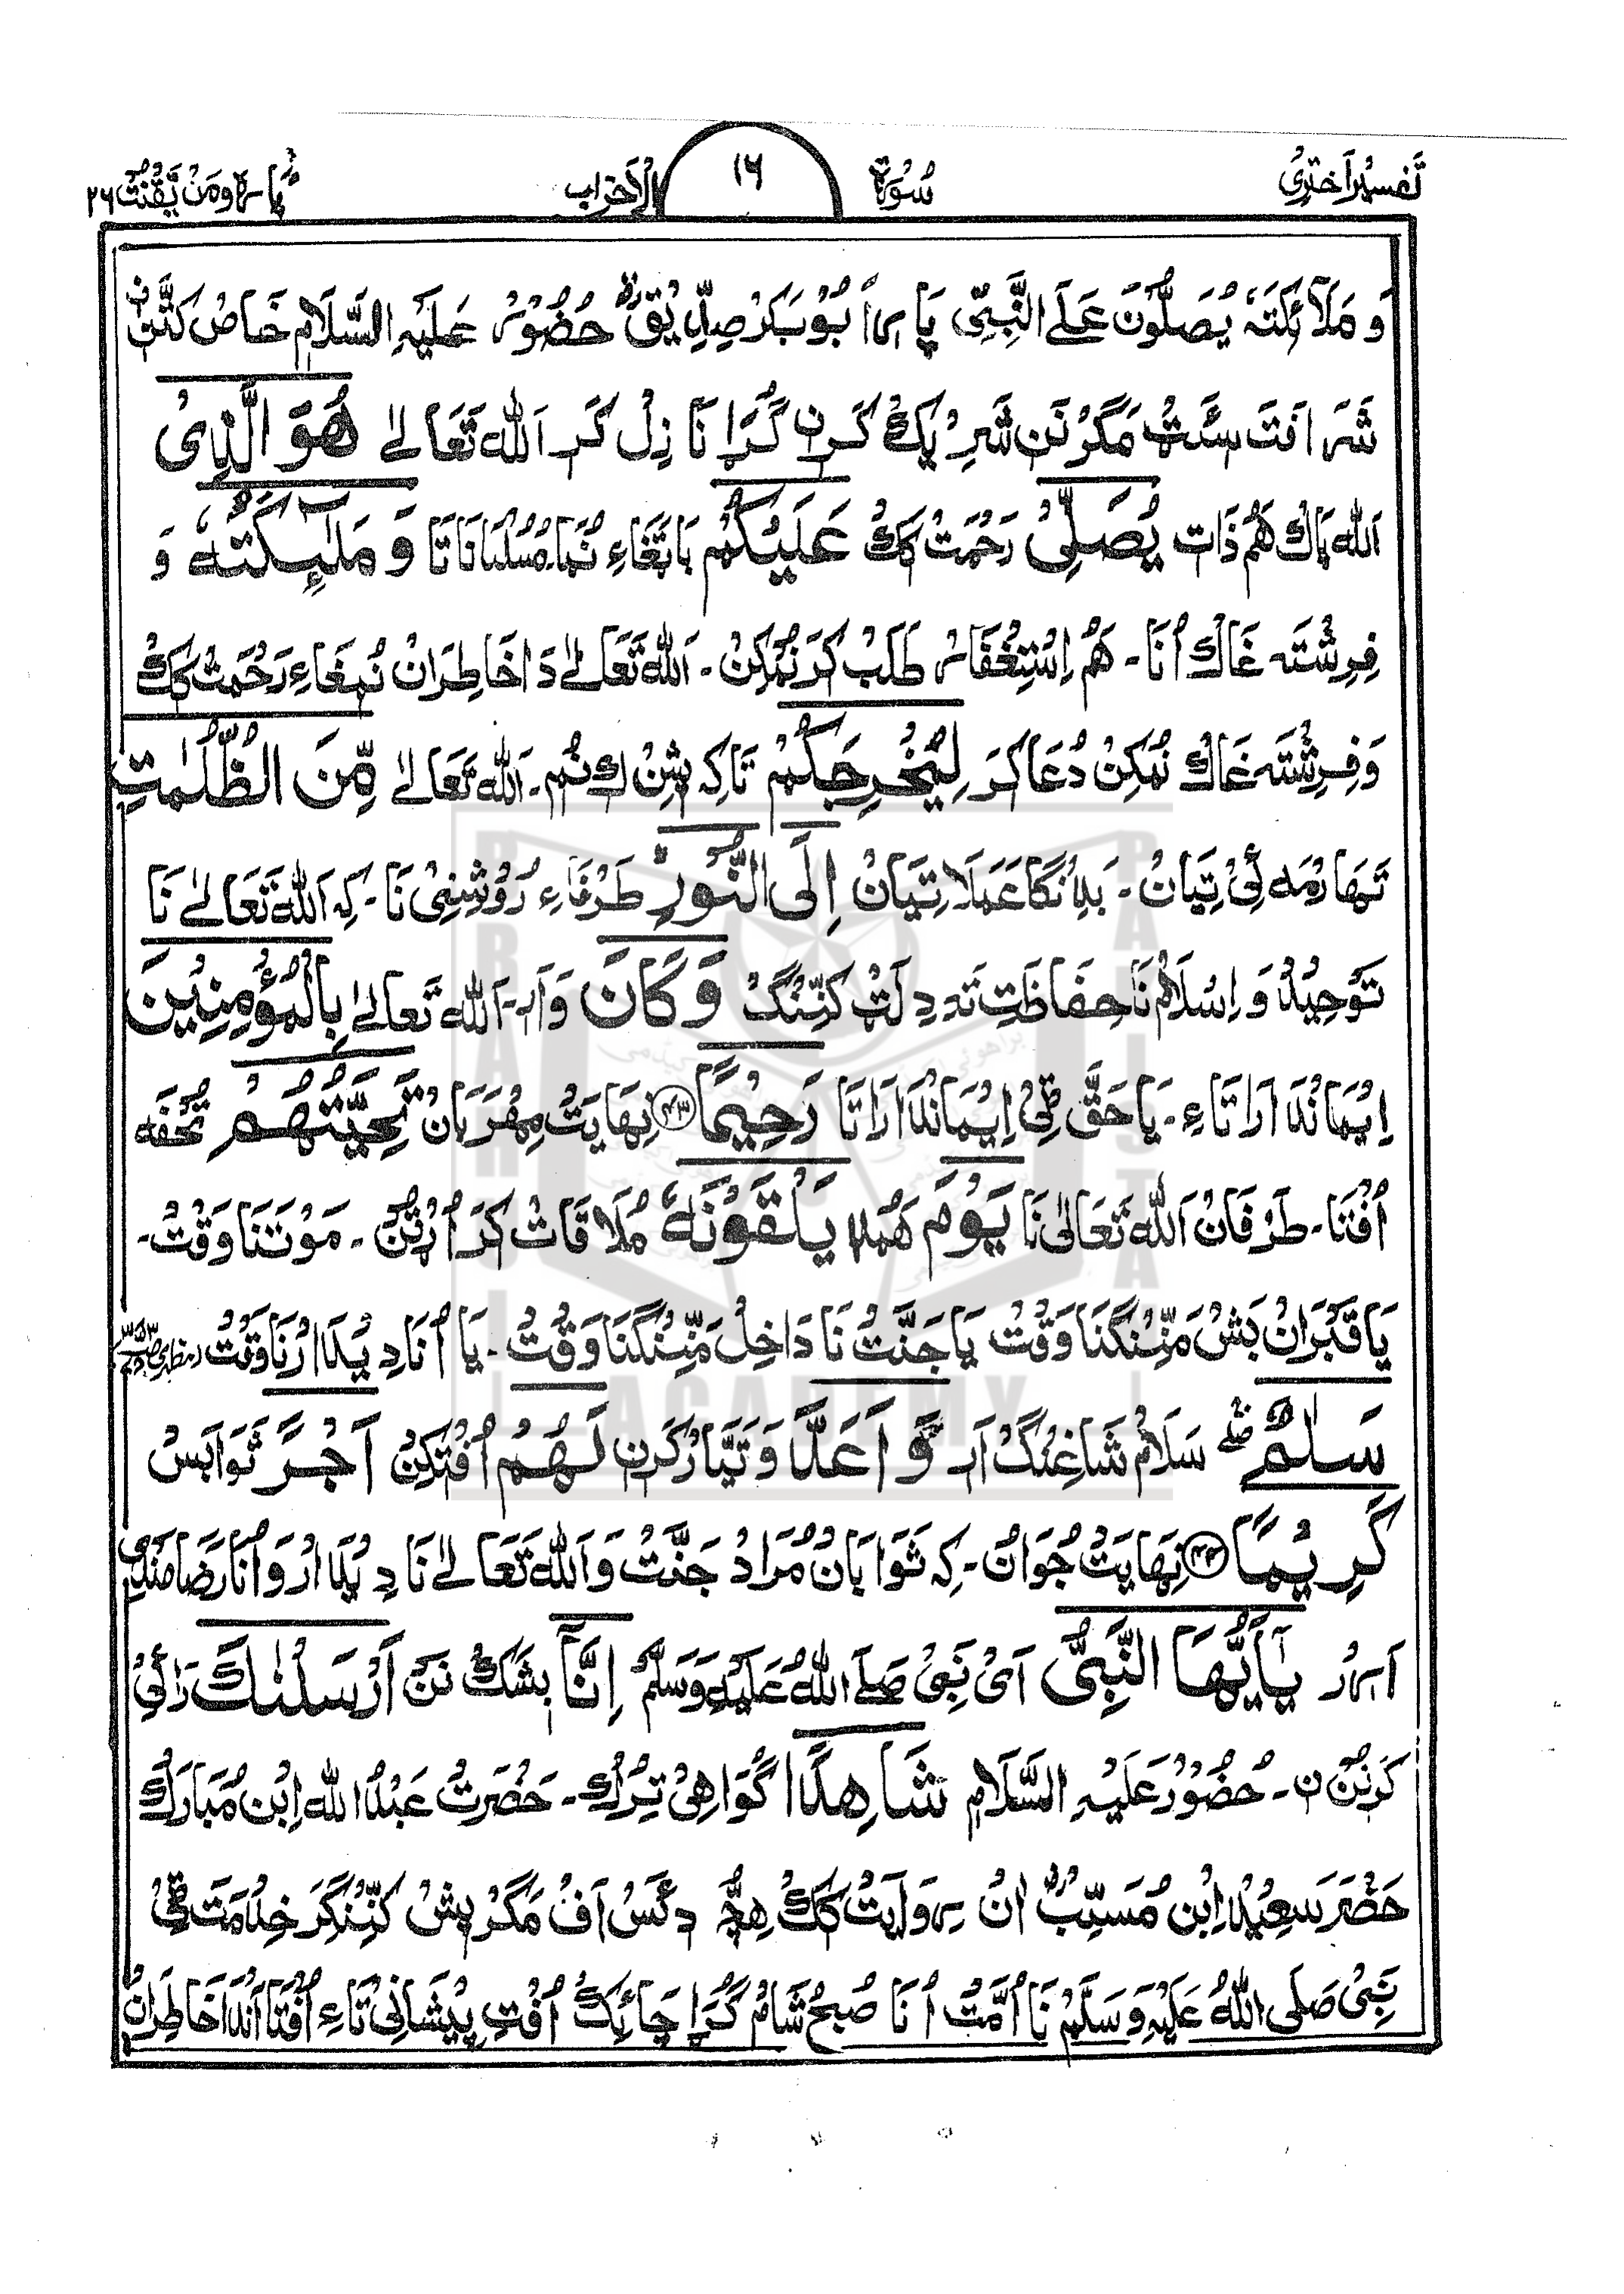 تَفسیرِ اَختری سُورۃ ۱۶ الاَحزاب پارہ وَمَنْ یَّقْنُتْ ۲۲
وَمَلَآئِکَتَہٗ یُصَلُّوْنَ عَلَے النَّبِیِّ پارا اَبُوْبَکَرْ صِدِّیْقْ حُضُوْر عَلَیْہِ السَّلَام خَاصْ کَنَنْ
شَرَافَتَ سَّتْ مَگَرْ نَن شَرِیْک کَرن گُڑا نَازِلْ کَر اَللہ تَعَالٰے ھُوَ الَّذِیْ
اَللہ پاکْ ھَم ذَات یُصَلِّیْ رَحْمَتْ کِکْ عَلَیْکُمْ بَاتَغَاءِ نُمَا مُسُلْمَانَاتَا وَ مَلٰٓئِکَتُہٗ وَ
فِرِشْتَہ غَاکْ اُنَا۔ ھَمْ اِسْتِغْفَار طَلَبْ کَرَ نُمْکِنْ۔ اَللہ تَعَالٰے دَا خَاطِرَانْ نُمْغَاءِ رَحْمَتْ کِکْ
وَفِرِشْتَہ غَاکْ نُمْکِنْ دُعَا کَرَ لِیُخْرِجَکُمْ تَاکِہ پَشِنْ کِ نُم۔ اَللہ تَعَالٰے مِّنَ الظُّلُمٰتِ
تَہَارْمَہ ئِیْ تِیَانْ۔ بَدِانْگَا عَمَلَاتِیَانْ اِلَی النُّوْرِ طَرْفَاءِ رُوْشِنِیْ نَا۔ کِہ اَللہ تَعَالٰے نَا
تَوْحِیْدْ وَ اِسْلَامْ نَا حِفَاظَتِ تَہ دِلَتْ کَنِّنْگْ وَکَانَ وَ اَر۔ اَللہ تَعَالٰے بِالْمُؤْمِنِیْنَ
اِیْمَانْدَارَاتَاءِ۔ یَا حَقّ ئِیْ اِیْمَانْدَارَاتَا رَحِیْمًا ﴿۴۳﴾ نِہَایَتْ مِہْرَبَانْ تَحِیَّتُھُمْ تُحْفَہ
اُفْتَا۔ طَرْفَانْ اَللہ تَعَالٰی نَا یَوْمَ ھَمْدِ یَلْقَوْنَہٗ مُلَاقَاتْ کَرَ اُرْتَنْ۔ مَوْتَنَا وَقْتْ۔
یَا قَبْرَانْ بَشْ مَنِّنْگَنَا وَقْتْ یَا جَنَّتْ نَا دَاخِلْ مَنِّنْگَنَا وَقْتْ۔ یَا اُنَا دِیْدَارْنَا وَقْتْ
سَلٰمٌ سَلَامْ شَاغِنْگْ اَر وَ اَعَدَّ وَ تَیَّارْ کَرن لَھُمْ اُفْتِکِنْ اَجْرًا ثَوَابَسْ
کَرِیْمًا ﴿۴۴﴾ نِہَایَتْ جُوَانْ۔ کِہ ثَوَابَانْ مُرَادْ جَنَّتْ وَ اَللہ تَعَالٰے نَا دِیْدَارْ وَ اُنَا رَضَامَنْدِی
اَرْ یٰٓاَیُّھَا النَّبِیُّ اَیْ نَبِیْ صَلَّے اللہُ عَلَیْہِ وَسَلَّمْ اِنَّآ بِشَکْ نَنْ اَرْسَلْنٰکَ رَائِیْ
کَرَیْنُنْ ن۔ حُضُوْر عَلَیْہِ السَّلَام شَاھِدًا گُوَاھِیْ تِرَکْ۔ حَضْرَتْ عَبْدُ اللہ اِبْن مُبَارَکْ
حَضْرَ سَعِیْدْ اِبْن مُسَیِّبْ اَنْ رِوَایَتْ کِکْ ھِچُّ دَ ئَسْ اَفْ مَگَرْ پِشْ کَنِّنْگَرَ خِدْمَتَ ئِیْ
نَبِیْ صَلَی اللہُ عَلَیْہِ وَسَلَّمْ نَا اُمَّتْ اُنَا صُبح شَامْ گُڑا چَائِکْ اُفْتِ پِیْشَانِیْ تَاءِ اُفْتَا اَنْدَا خَاطِرَانْ